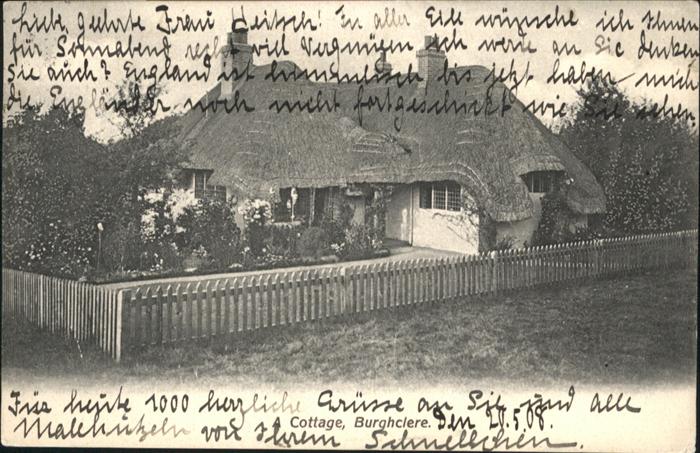 Lieb. geehrte Frau Heitsch! In aller Eile wünsche ich Ihnen
für Sonnabend recht viel Vergnügen. Ich werde an Sie denken
Sie auch? England ist himmlisch bis jetzt haben mich
die Engländer noch nicht fortgeschickt wie Sie sehen.
Für heute 1000 herzliche Grüsse an Sie und alle
Cottage, Burghclere. Den 27.5.08.
von Ihrem Schnellchen.